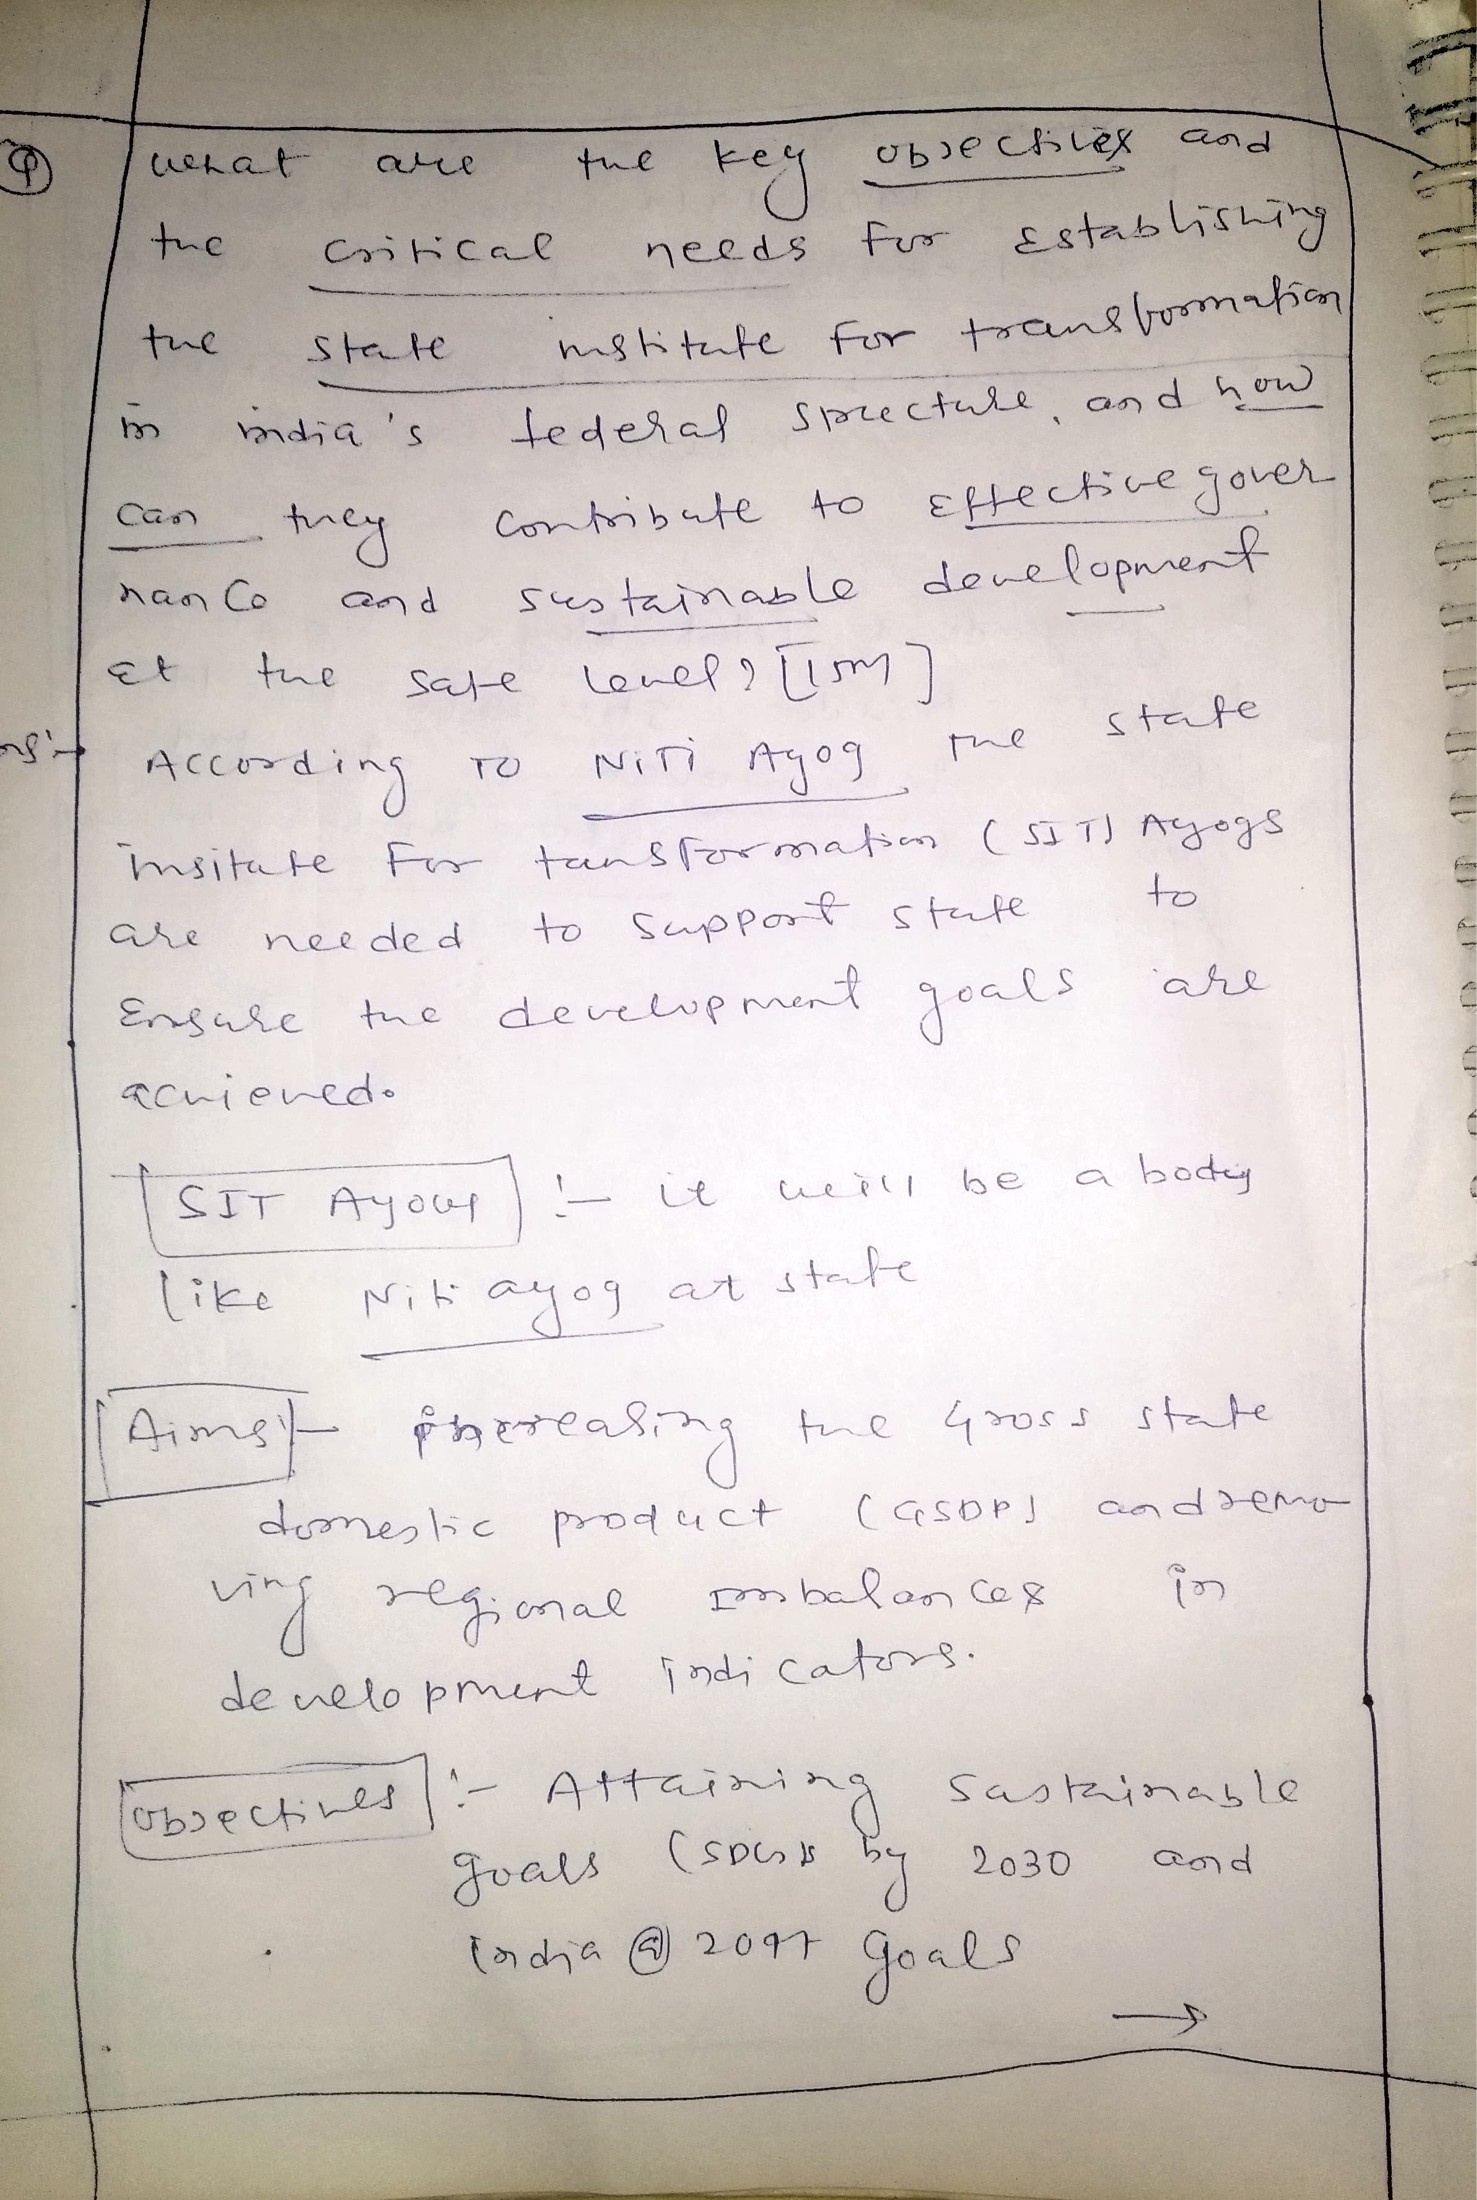 Q
what are the key objectives and
the critical needs for Establishing
the state institute for transformation
in india's federal structure, and how
can they contribute to Effective gover
nance and sustainable development
at the sate level? [15M]
ns:- According TO NITI Ayog the state
insitute For tansformation (SIT) Ayogs
are needed to support state to
Ensure the development goals are
achieved.
SIT Ayogs :- it will be a body
like Niti ayog at state
Aims :- increasing the Gross state
domestic product (GSDP) and remo
ving regional Imbalances in
development indicators.
Objectives :- Attaining sustainable
goals (SDGs by 2030 and
india @ 2047 goals
→